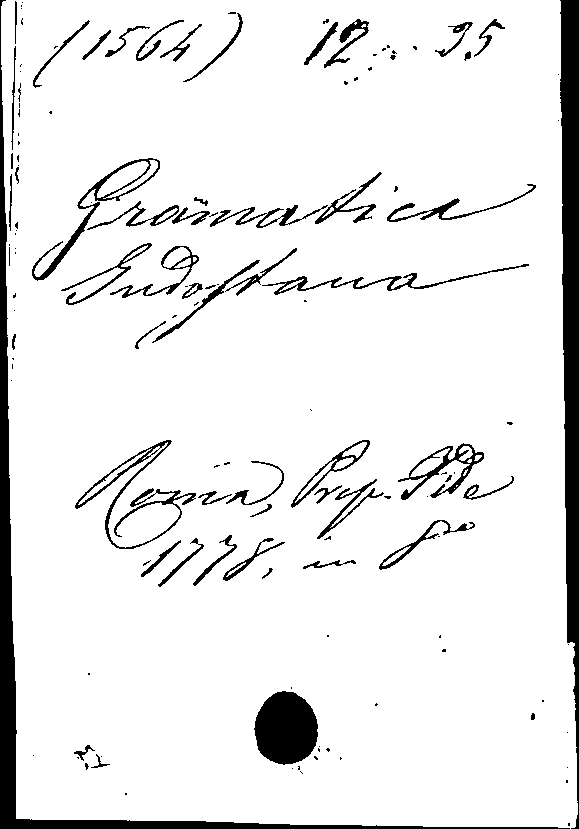 (1564) 12 35
Gramatica
Indostana
Roma, Prop. Fide
1778, in 8º